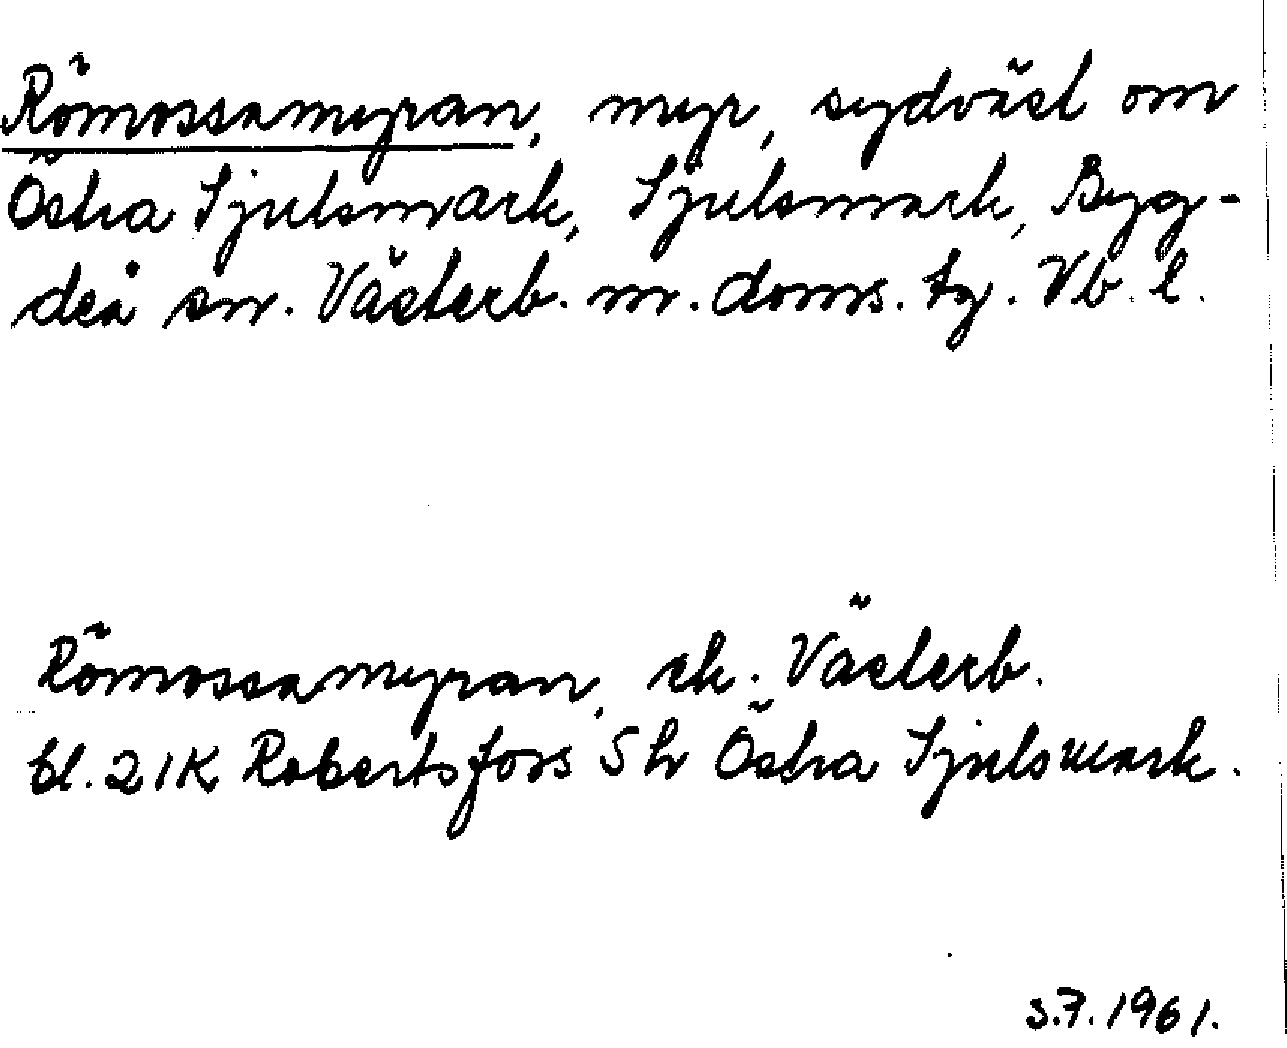 Römossamyran, myr, sydväst om
Östra Sjulsmark, Sjulsmark, Byg-
deå sn. Västerb. m. doms. tg. Vb. l.
Römossamyran, ek. Västerb.
bl. 21K Robertsfors 5 h Östra Sjulsmark.
3.7.1961.